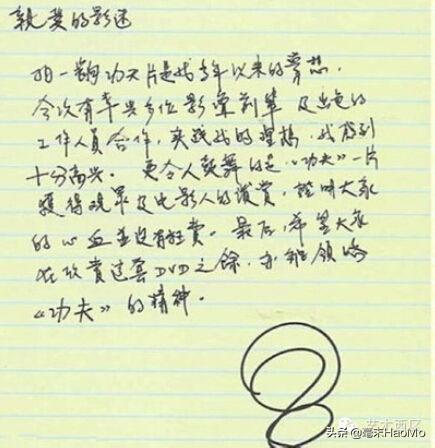 親愛的影迷
拍一齣功夫片是我多年以來的夢想.
今次有幸與多位影壇前輩及出色的
工作人員合作,實踐我的理想,我感到
十分高兴. 更令人鼓舞的是,《功夫》一片
獲得观眾及电影人的讚赏,証明大家
的心血並没有枉費。最后,希望大家
在欣賞这套DVD之餘,亦能領略
《功夫》的精神。
艺术西区
头条@毫末HaoMo